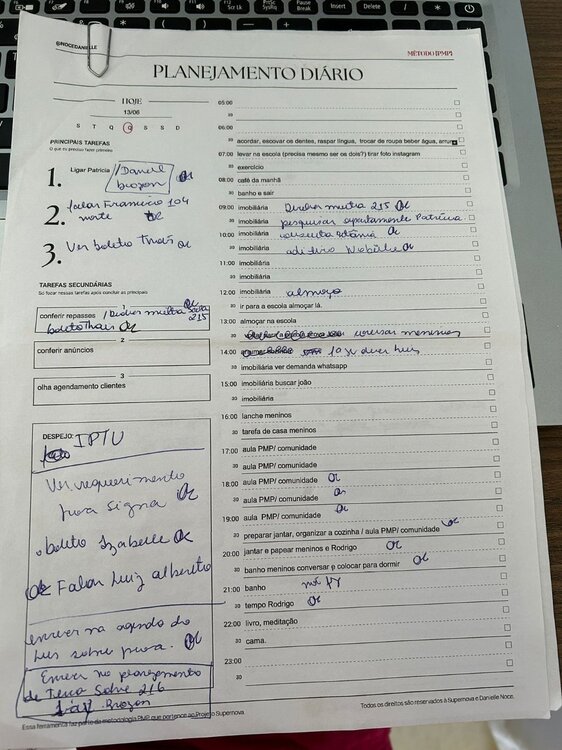 @NOCEDANIELLE
MÉTODO [PMP]
PLANEJAMENTO DIÁRIO
HOJE
13/06
S T Q Q S S D
PRINCIPAIS TAREFAS
O que eu preciso fazer primeiro
1. Ligar Patricia / Daniel brozon ok
2. falar Francisco 104 norte ok
3. Ver boleto Thais ok
TAREFAS SECUNDÁRIAS
Só focar nessas tarefas após concluir as principais
conferir repasses / Dividir multa sala 215 ok
boleto Thais ok
2
conferir anúncios
3
olha agendamento clientes
DESPEJO: IPTU
Ver requerimento
prova signa ok
boleto Izabelle ok
ok Falar Luiz alberto
escrever na agenda do
Luis sobre prova. ok
Escrever no planejamento
de Terça sobre 216
Brozon
05:00
30
06:00
30 acordar, escovar os dentes, raspar língua, trocar de roupa beber água, arrum
07:00 levar na escola (precisa mesmo ser os dois?) tirar foto instagram
30 exercício
08:00 café da manhã
30 banho e sair
09:00 imobiliária Dividir multa 215 ok
30 imobiliária pesquisar apartamento Patrícia
10:00 imobiliária ok
30 imobiliária aditivo ok
11:00 imobiliária
30 imobiliária
12:00 imobiliária almoço
30 ir para a escola almoçar lá.
13:00 almoçar na escola
30 conversar meninos
14:00 fazer dever Luis
30 imobiliária ver demanda whatsapp
15:00 imobiliária buscar joão
30 imobiliária
16:00 lanche meninos
30 tarefa de casa meninos
17:00 aula PMP/ comunidade
30 aula PMP/ comunidade
18:00 aula PMP/ comunidade ok
30 aula PMP/ comunidade ok
19:00 aula PMP/ comunidade ok
30 preparar jantar, organizar a cozinha / aula PMP/ comunidade ok
20:00 jantar e papear meninos e Rodrigo ok
30 banho meninos conversar e colocar para dormir ok
21:00 banho
30 tempo Rodrigo ok
22:00 livro, meditação
30 cama.
23:00
30
Essa ferramenta faz parte da metodologia PMP que pertence ao Projeto Supernova.
Todos os direitos são reservados à Supernova e Danielle Noce.